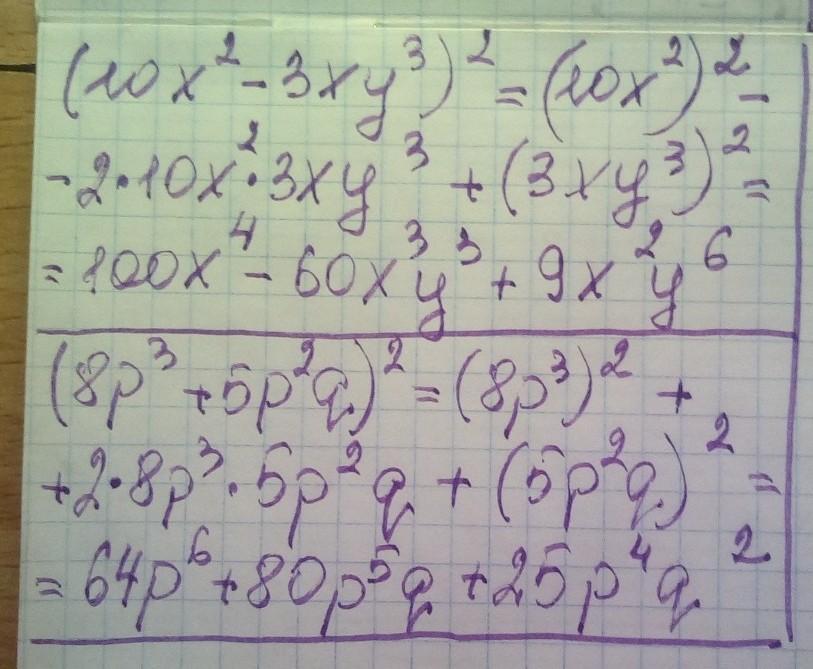 (10x² - 3xy³)² = (10x²)² -
- 2·10x²·3xy³ + (3xy³)² =
= 100x⁴ - 60x³y³ + 9x²y⁶
(8p³ + 5p²q)² = (8p³)² +
+ 2·8p³·5p²q + (5p²q)² =
= 64p⁶ + 80p⁵q + 25p⁴q²